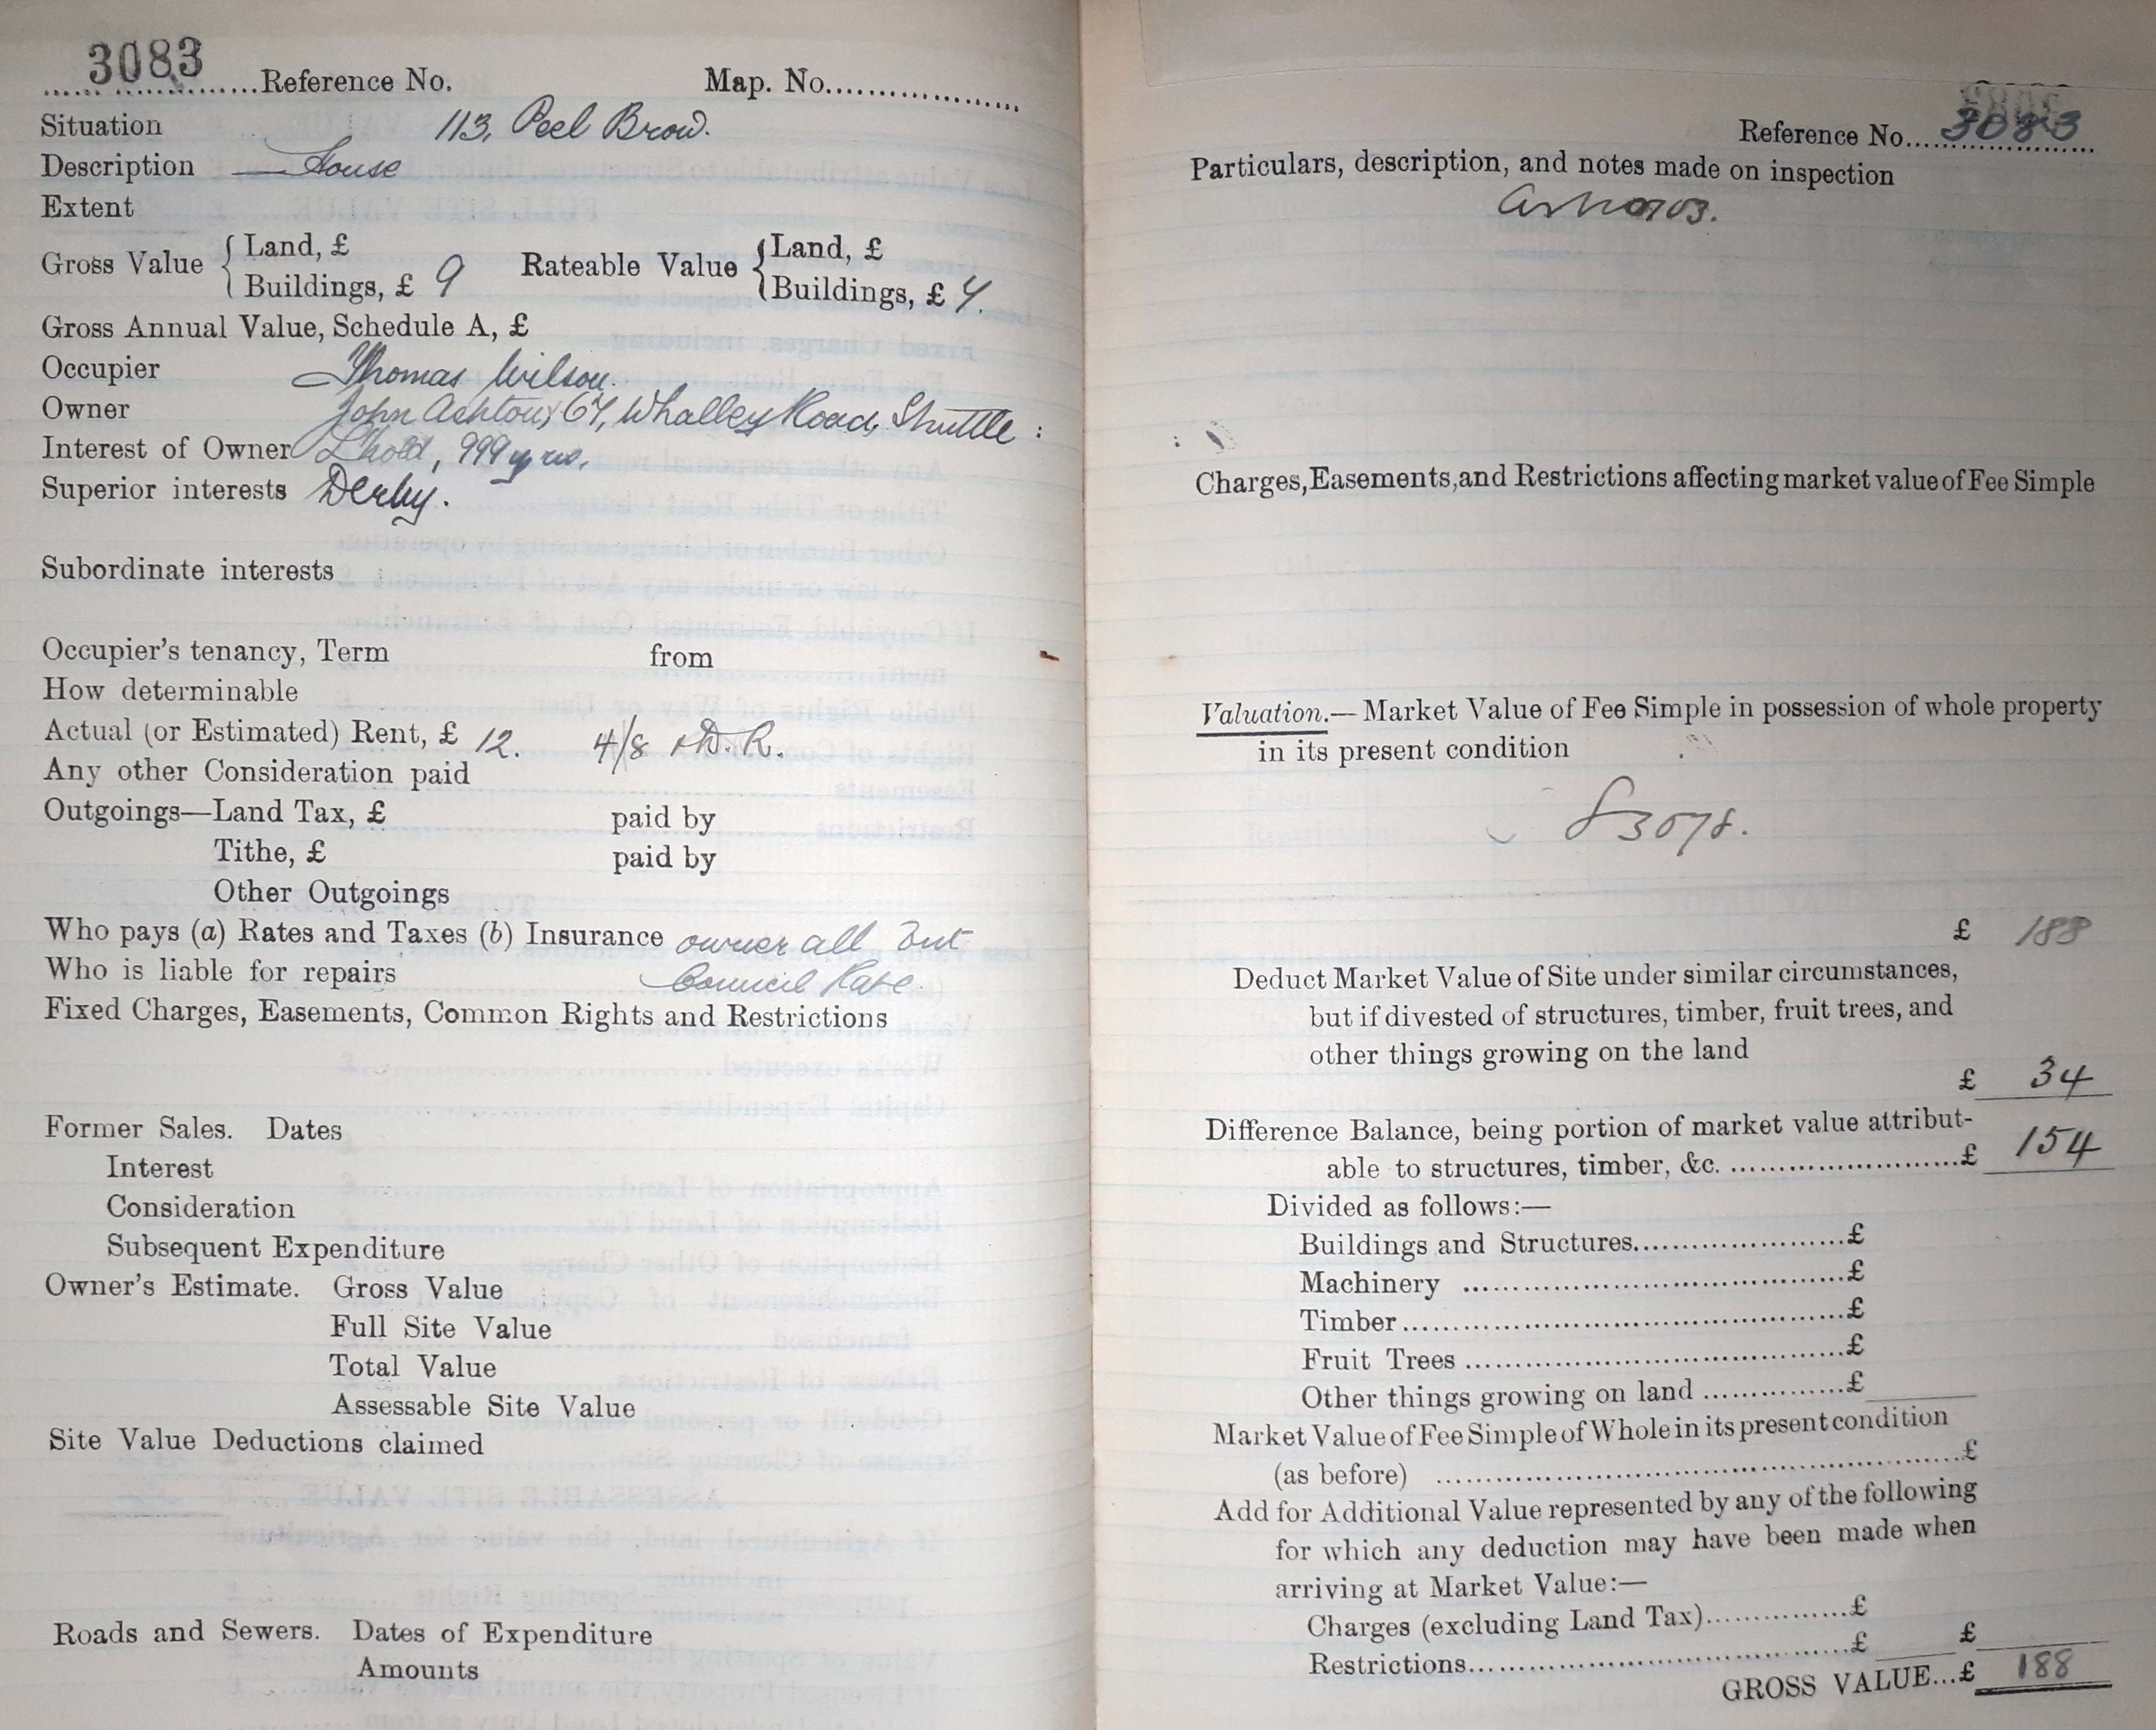 3083
Reference No. Map. No.
Situation 113, Peel Brow.
Description House
Extent
Gross Value { Land, £
Buildings, £ 9
Rateable Value { Land, £
Buildings, £
Gross Annual Value, Schedule A, £
Occupier Thomas Wilson.
Owner John Ashton, Whalley Road, Shuttle :
Interest of Owner L'hold, 999 yrs.
Superior interests Derby.
Subordinate interests
Occupier's tenancy, Term from
How determinable
Actual (or Estimated) Rent, £ 12. 4/8 D. R.
Any other Consideration paid
Outgoings—Land Tax, £ paid by
Tithe, £ paid by
Other Outgoings
Who pays (a) Rates and Taxes (b) Insurance owner all but
Who is liable for repairs Council Rate.
Fixed Charges, Easements, Common Rights and Restrictions
Former Sales. Dates
Interest
Consideration
Subsequent Expenditure
Owner's Estimate. Gross Value
Full Site Value
Total Value
Assessable Site Value
Site Value Deductions claimed
Roads and Sewers. Dates of Expenditure
Amounts
Reference No. 3083
Particulars, description, and notes made on inspection
Charges, Easements, and Restrictions affecting market value of Fee Simple
Valuation.— Market Value of Fee Simple in possession of whole property
in its present condition
3078.
£ 188
Deduct Market Value of Site under similar circumstances,
but if divested of structures, timber, fruit trees, and
other things growing on the land
£ 34
Difference Balance, being portion of market value attribut-
able to structures, timber, &c. £ 154
Divided as follows:—
Buildings and Structures £
Machinery £
Timber £
Fruit Trees £
Other things growing on land £
Market Value of Fee Simple of Whole in its present condition
(as before) £
Add for Additional Value represented by any of the following
for which any deduction may have been made when
arriving at Market Value:—
Charges (excluding Land Tax) £
Restrictions £ £
GROSS VALUE...£ 188